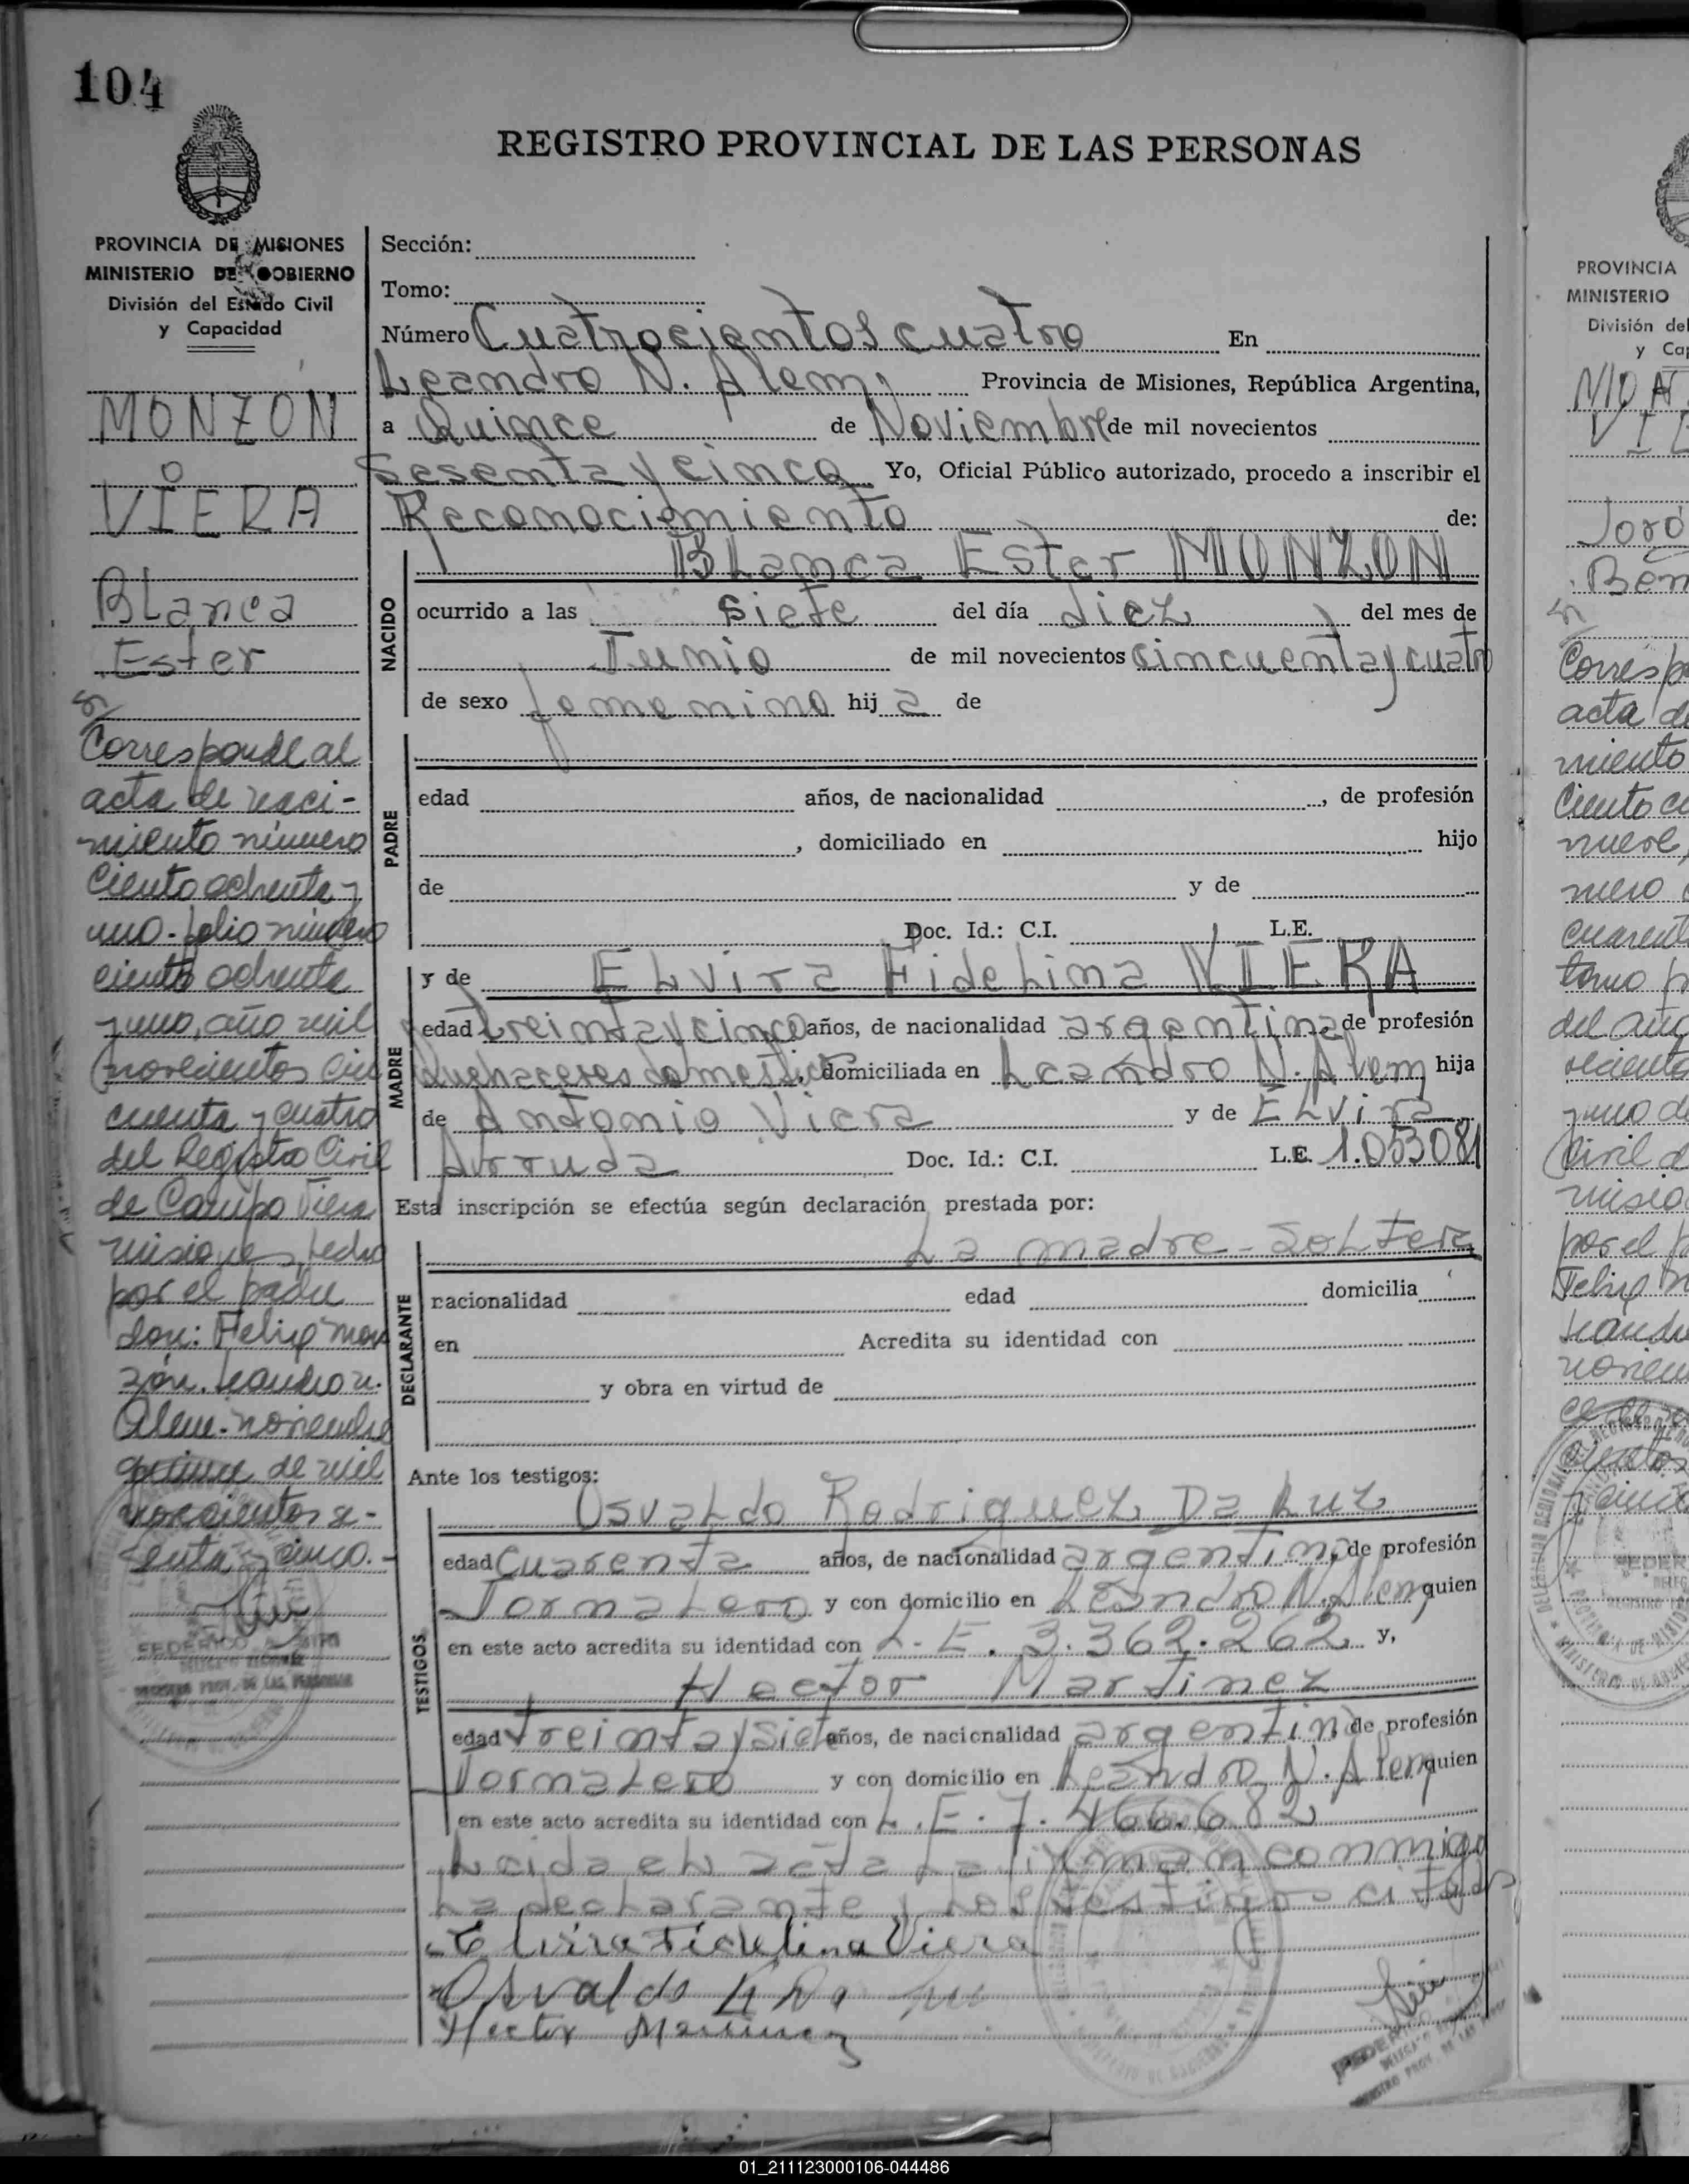 104
REGISTRO PROVINCIAL DE LAS PERSONAS
PROVINCIA DE MISIONES
MINISTERIO DE GOBIERNO
División del Estado Civil
y Capacidad
MONZON
o
VIERA
Blanca
Ester
Corresponde al
acta de naci-
miento número
ciento ochenta y
uno. folio número
ciento ochenta
y uno, año mil
novecientos cin
cuenta y cuatro
del Registro Civil
de Campo Viera
Misiones, hecho
por el padre
don: Felix Mon
zón. Leandro N.
Alem. noviembre
quince de mil
novecientos se-
senta y cinco.-
FEDERICO
DELEGADO REGIONAL
REGISTRO PROV. DE LAS PERSONAS
Sección:
Tomo:
Número Cuatrocientos cuatro En
Leandro N. Alem, Provincia de Misiones, República Argentina,
a Quince de Noviembre de mil novecientos
Sesenta y cinco Yo, Oficial Público autorizado, procedo a inscribir el
Reconocimiento de:
NACIDO
Blanca Ester MONZON
ocurrido a las siete del día diez del mes de
Junio de mil novecientos cincuenta y cuatro
de sexo femenino hij a de
PADRE
edad años, de nacionalidad , de profesión
, domiciliado en hijo
de y de
Doc. Id.: C.I. L.E.
MADRE
y de Elvira Fidelina VIERA
edad treinta y cinco años, de nacionalidad argentina, de profesión
Quehaceres domestico, domiciliada en Leandro N. Alem hija
de Antonio Viera y de Elvira
Arruda Doc. Id.: C.I. L.E. 1.053081
Esta inscripción se efectúa según declaración prestada por:
DECLARANTE
La madre - soltera
nacionalidad edad domicilia
en Acredita su identidad con
y obra en virtud de
Ante los testigos:
TESTIGOS
Osvaldo Rodriguez Da Luz
edad cuarenta años, de nacionalidad argentino, de profesión
Jornalero y con domicilio en Leandro N. Alem quien
en este acto acredita su identidad con L.E. 3.362.262 y,
Hector Martinez
edad treinta y siete años, de nacionalidad argentino, de profesión
Jornalero y con domicilio en Leandro N. Alem quien
en este acto acredita su identidad con L.E. 7.466.682
Leida el acta la firman conmigo
la declarante y los testigos citados
Elvira Fidelina Viera
Osvaldo
Hector Martinez
PROVINCIA
MINISTERIO
División del
y Ca
Corresp
acta de
miento
ciento
nueve,
cuarent
tomo
del año
por el
Felix
01_211123000106-044486